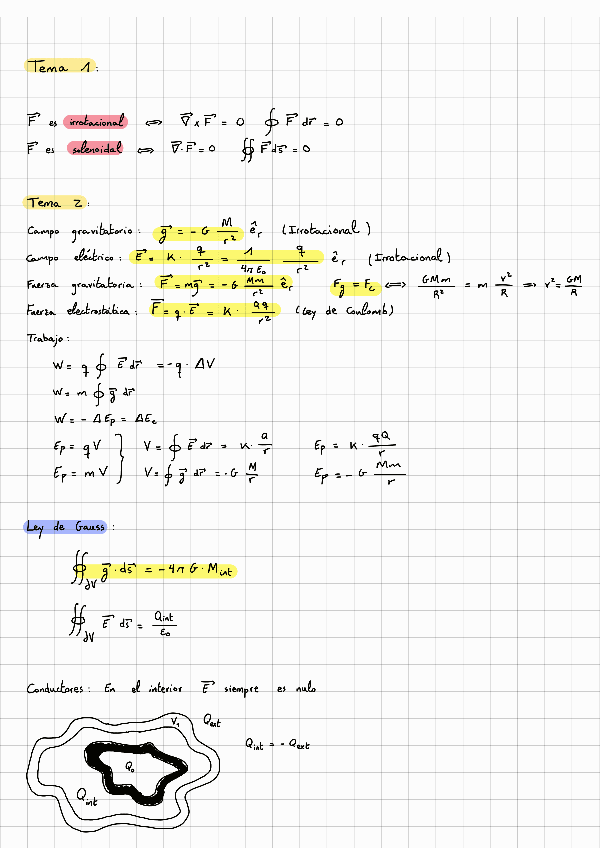 Tema 1:
F⃗ es irrotacional ⟺ ∇⃗ × F⃗ = 0 ∮ F⃗ dr⃗ = 0
F⃗ es solenoidal ⟺ ∇⃗ · F⃗ = 0 ∯ F⃗ ds⃗ = 0
Tema 2:
Campo gravitatorio: g⃗ = - G M/r² ê_r (Irrotacional)
Campo eléctrico: E⃗ = K · q/r² = 1/4πε₀ q/r² ê_r (Irrotacional)
Fuerza gravitatoria: F⃗ = mg⃗ = - G Mm/r² ê_r F_g = F_c ⟺ GMm/R² = m v²/R ⇒ v² = GM/R
Fuerza electrostática: F⃗ = q · E⃗ = K · Qq/r² (Ley de Coulomb)
Trabajo:
W = q ∮ E⃗ dr⃗ = - q · ΔV
W = m ∮ g⃗ dr⃗
W = - ΔEp = ΔEc
Ep = qV } V = ∮ E⃗ dr⃗ = K · Q/r Ep = K · qQ/r
Ep = mV } V = ∮ g⃗ dr⃗ = - G M/r Ep = - G Mm/r
Ley de Gauss:
∯_∂V g⃗ · ds⃗ = - 4π G · M_int
∯_∂V E⃗ ds⃗ = Q_int/ε₀
Conductores: En el interior E⃗ siempre es nulo
V₁ Q_ext
Q_int = - Q_ext
Q₀
Q_int